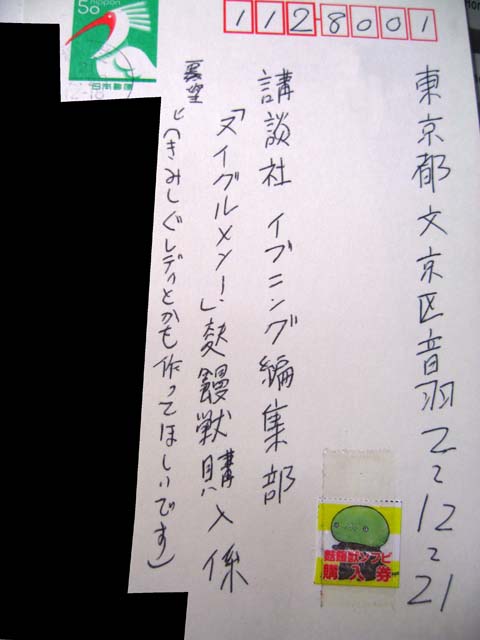 50 nippon
日本郵便
1128001
東京都文京区音羽2-12-21
講談社 イブニング編集部
「ヌイグルメン!」麩饅獣購入係
(きみしぐレディとかも作ってほしいです)
麩饅獣ソフビ
購入券